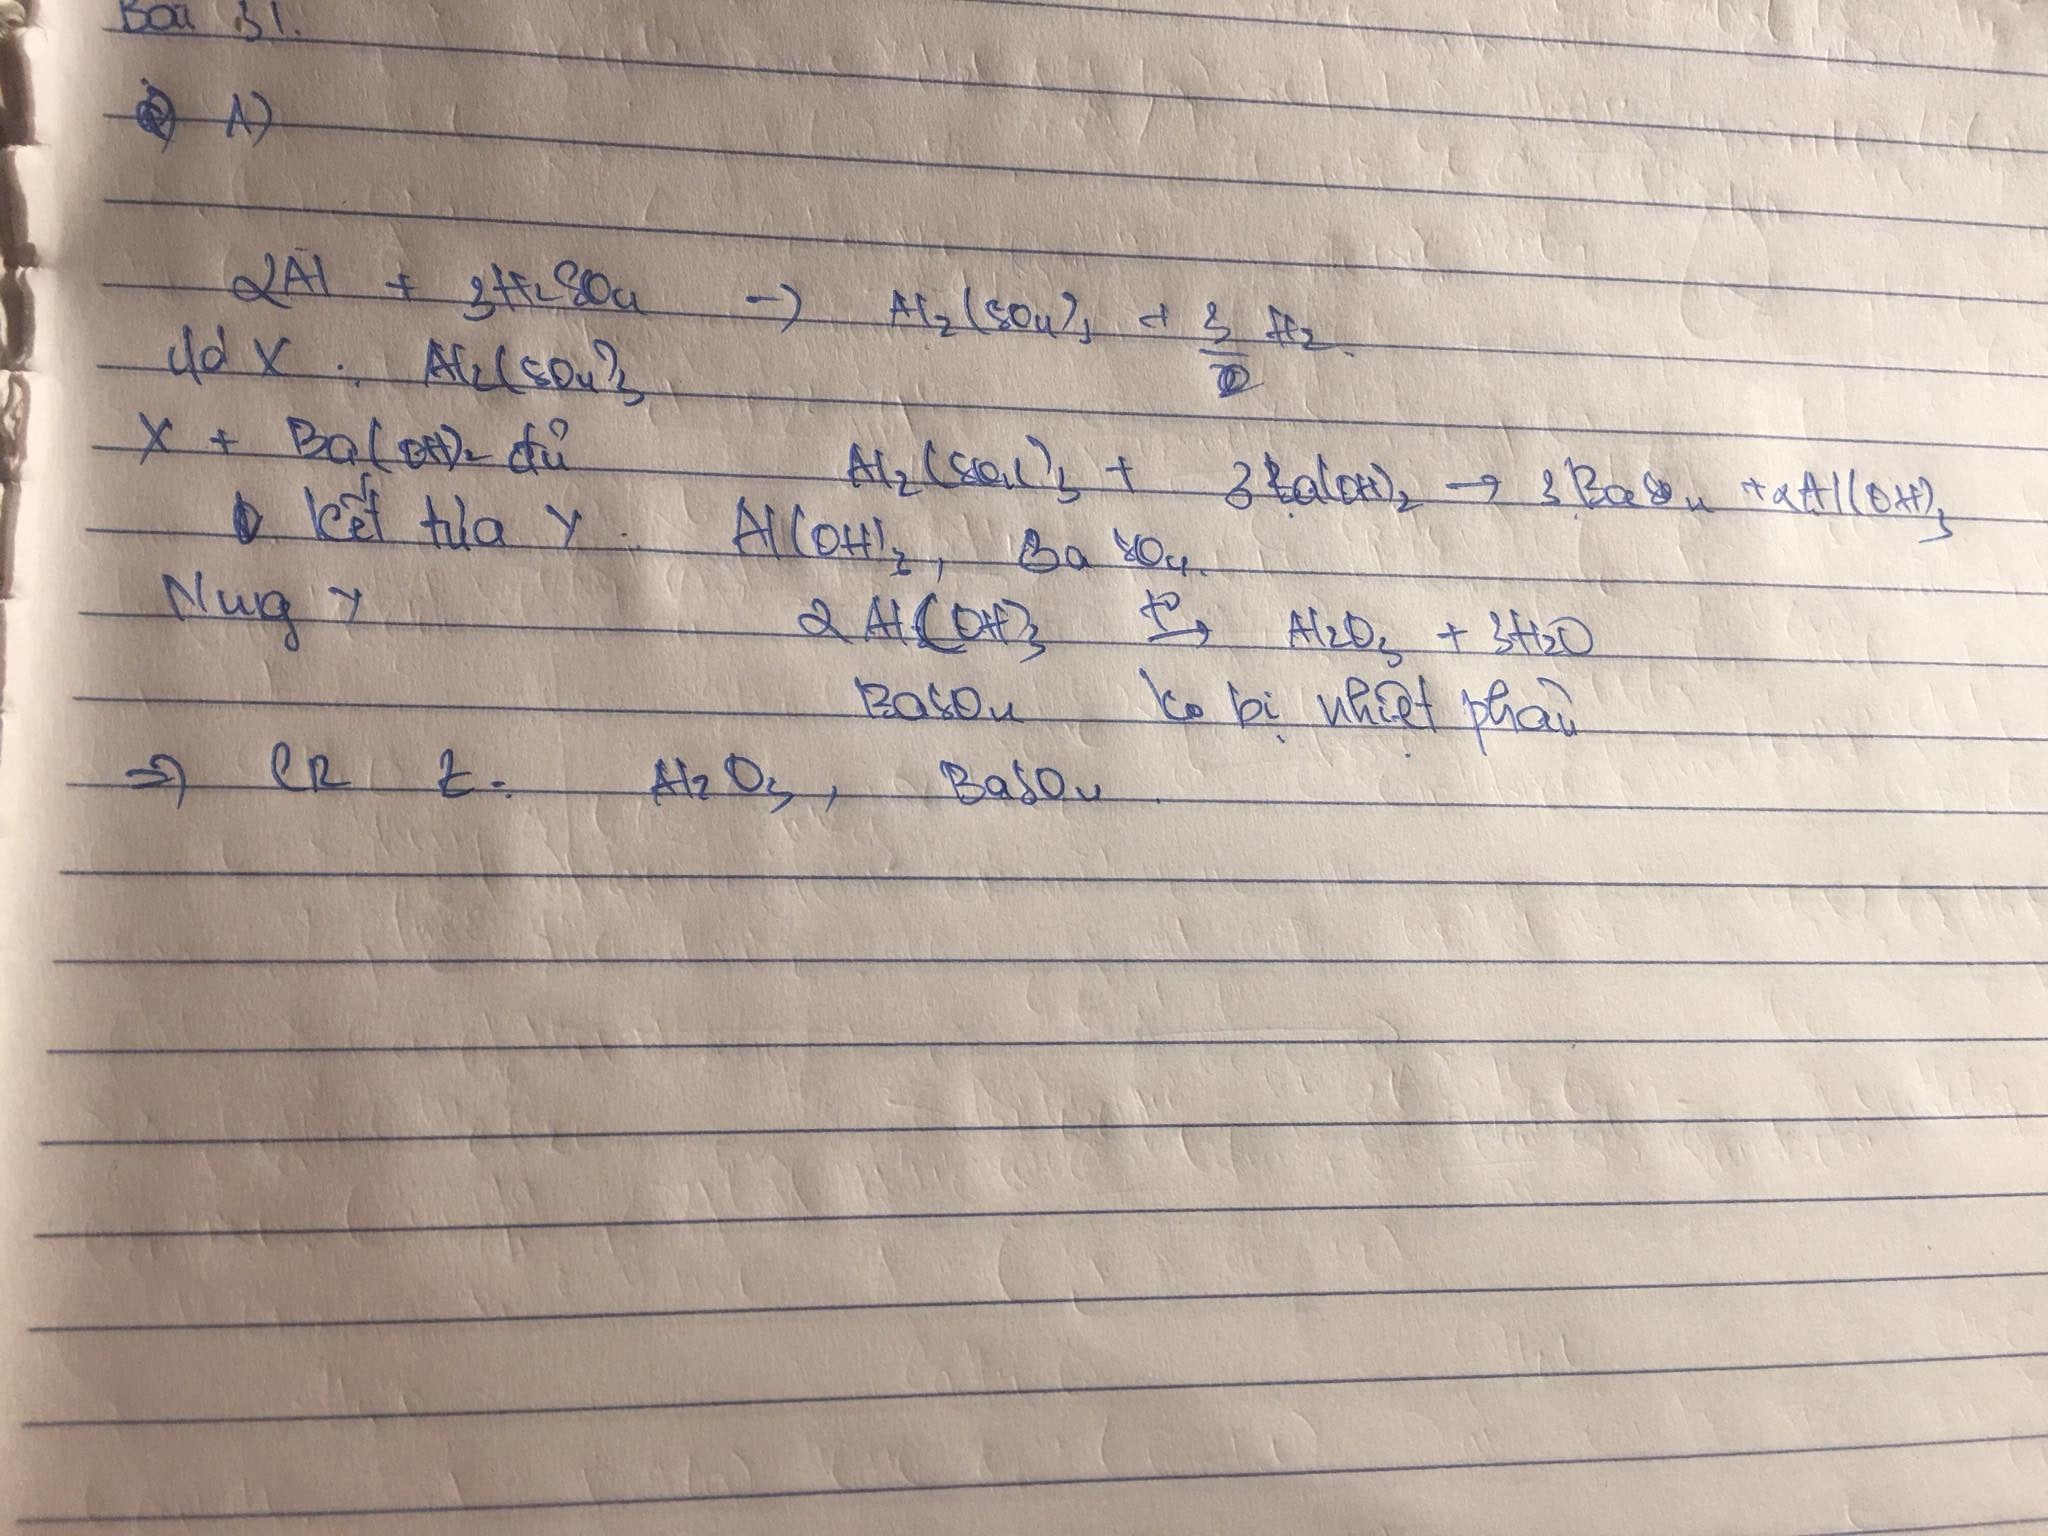 Bài 31.
A)
2Al + 3H2SO4 -> Al2(SO4)3 + 3 H2.
dd X : Al2(SO4)3
X + Ba(OH)2 đủ Al2(SO4)3 + 3Ba(OH)2 -> 3BaSO4 + 2Al(OH)3
kết tủa Y : Al(OH)3, BaSO4.
Nung Y 2Al(OH)3 t° -> Al2O3 + 3H2O
BaSO4 ko bị nhiệt phân
=> CR Z : Al2O3, BaSO4.